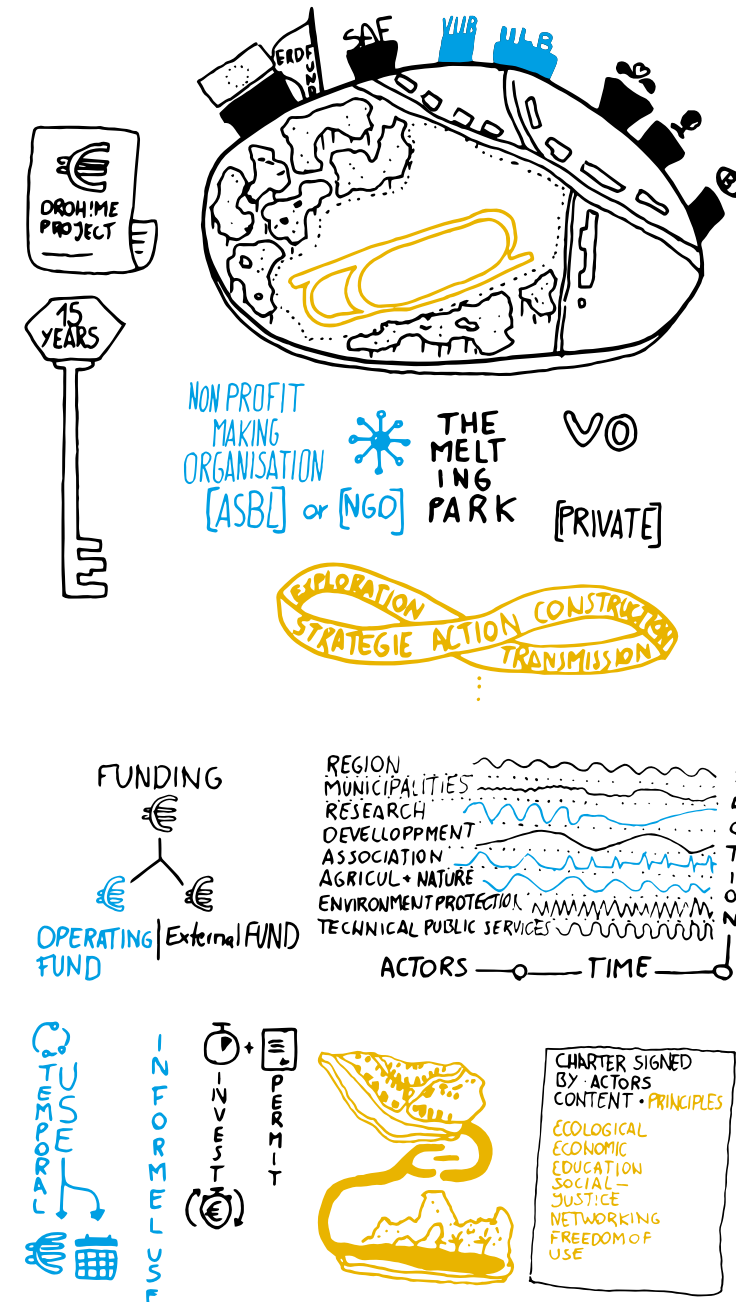 ERDF
FUND
SAF
VUB
ULB
DROH!ME
PROJECT
15
YEARS
NON PROFIT
MAKING
ORGANISATION
[ASBL] or [NGO]
THE
MELT
ING
PARK
VO
[PRIVATE]
EXPLORATION
STRATEGIE ACTION CONSTRUCTION
TRANSMISSION
FUNDING
OPERATING
FUND
External FUND
REGION
MUNICIPALITIES
RESEARCH
DEVELLOPPMENT
ASSOCIATION
AGRICUL + NATURE
ENVIRONMENT PROTECTION
TECHNICAL PUBLIC SERVICES
ACTORS TIME
TEMPORAL
USE
INFORMEL USE
INVEST
+
PERMIT
CHARTER SIGNED
BY · ACTORS
CONTENT · PRINCIPLES
ECOLOGICAL
ECONOMIC
EDUCATION
SOCIAL-
JUSTICE
NETWORKING
FREEDOM OF
USE